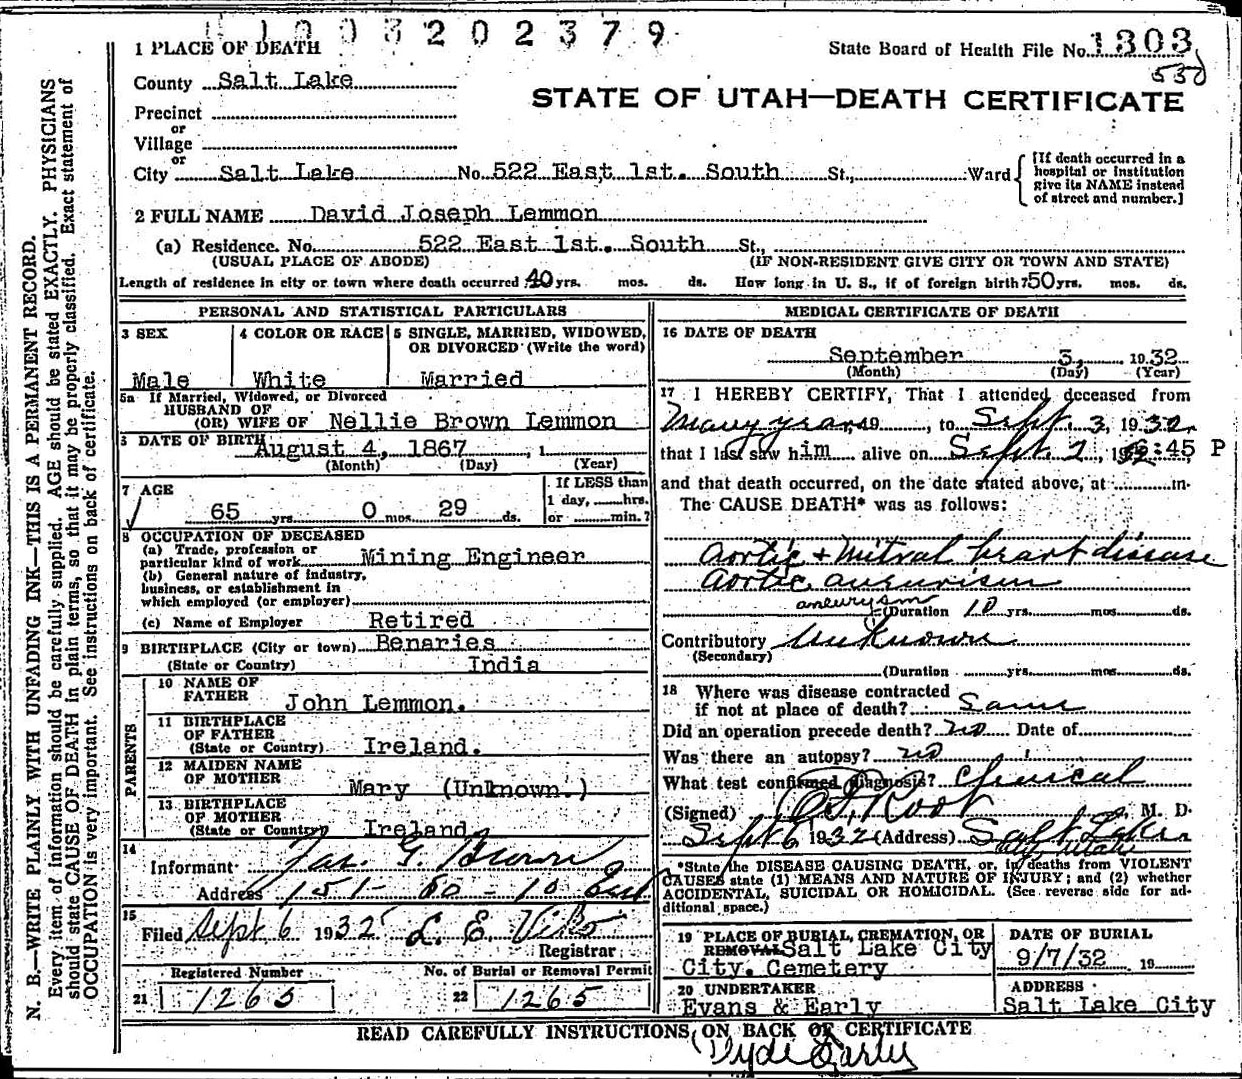 1003202379
1 PLACE OF DEATH
State Board of Health File No. 1303
County Salt Lake
530
STATE OF UTAH—DEATH CERTIFICATE
Precinct
or
Village
or
City Salt Lake No. 522 East 1st. South St.; Ward
[If death occurred in a
hospital or institution
give its NAME instead
of street and number.]
2 FULL NAME David Joseph Lemmon
(a) Residence. No. 522 East 1st. South St.,
(USUAL PLACE OF ABODE) (IF NON-RESIDENT GIVE CITY OR TOWN AND STATE)
Length of residence in city or town where death occurred 40 yrs. mos. ds. How long in U. S., if of foreign birth? 50 yrs. mos. ds.
PERSONAL AND STATISTICAL PARTICULARS
3 SEX
Male
4 COLOR OR RACE
White
5 SINGLE, MARRIED, WIDOWED,
OR DIVORCED (Write the word)
Married
5a If Married, Widowed, or Divorced
HUSBAND OF
(OR) WIFE OF Nellie Brown Lemmon
6 DATE OF BIRTH
August 4, 1867, 1
(Month) (Day) (Year)
7 AGE
65 yrs. 0 mos. 29 ds.
If LESS than
1 day, hrs.
or min.?
8 OCCUPATION OF DECEASED
(a) Trade, profession or
particular kind of work Mining Engineer
(b) General nature of industry,
business, or establishment in
which employed (or employer)
(c) Name of Employer Retired
9 BIRTHPLACE (City or town) Benaries
(State or Country) India
PARENTS
10 NAME OF
FATHER John Lemmon.
11 BIRTHPLACE
OF FATHER
(State or Country) Ireland.
12 MAIDEN NAME
OF MOTHER Mary (Unknown.)
13 BIRTHPLACE
OF MOTHER
(State or Country) Ireland
14
Informant Jas. G. Brown
Address 151- So - 10 East
15
Filed Sept 6 1932 L. E. Viko
Registrar
Registered Number
21 1265
No. of Burial or Removal Permit
22 1265
MEDICAL CERTIFICATE OF DEATH
16 DATE OF DEATH
September 3, 1932
(Month) (Day) (Year)
17 I HEREBY CERTIFY, That I attended deceased from
Many years, 19, to Sept. 3, 1932
that I last saw him alive on Sept 2, 19
6:45 P
and that death occurred, on the date stated above, at m.
The CAUSE DEATH* was as follows:
Aortic + Mitral heart disease
Aortic aneurism
aneurysm
(Duration 10 yrs. mos. ds.
Contributory Unknown
(Secondary)
(Duration yrs. mos. ds.
18 Where was disease contracted
if not at place of death? Same
Did an operation precede death? no Date of
Was there an autopsy? no
What test confirmed diagnosis? Clinical
(Signed) Root M. D.
Sept 6 1932 (Address) Salt Lake
City Utah
*State the DISEASE CAUSING DEATH, or, in deaths from VIOLENT
CAUSES state (1) MEANS AND NATURE OF INJURY; and (2) whether
ACCIDENTAL, SUICIDAL OR HOMICIDAL. (See reverse side for ad-
ditional space.)
19 PLACE OF BURIAL, CREMATION, OR
REMOVAL Salt Lake City
City. Cemetery
DATE OF BURIAL
9/7/32 19
20 UNDERTAKER
Evans & Early
ADDRESS
Salt Lake City
READ CAREFULLY INSTRUCTIONS ON BACK OF CERTIFICATE
Clyde Early
N. B.—WRITE PLAINLY WITH UNFADING INK—THIS IS A PERMANENT RECORD.
Every item of information should be carefully supplied. AGE should be stated EXACTLY. PHYSICIANS
should state CAUSE OF DEATH in plain terms, so that it may be properly classified. Exact statement of
OCCUPATION is very important. See instructions on back of certificate.